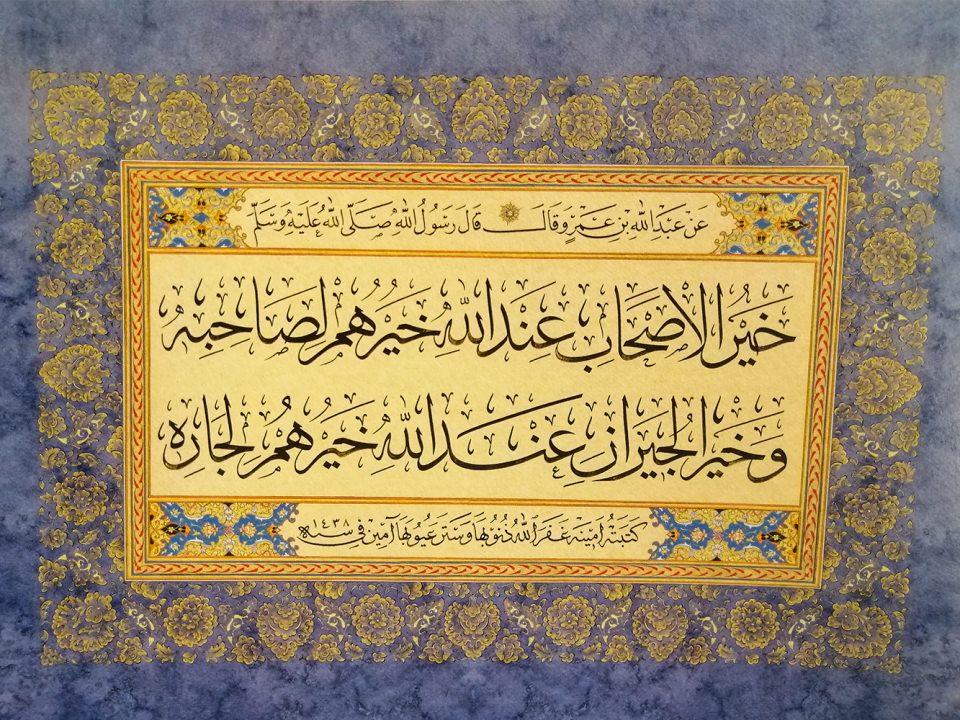 عَنْ عَبْدِ اللهِ بْنِ عَمْرٍو قَالَ قَالَ رَسُولُ اللهِ صَلَّى اللهُ عَلَيْهِ وَسَلَّمَ
خَيْرُ الْأَصْحَابِ عِنْدَ اللهِ خَيْرُهُمْ لِصَاحِبِهِ
وَخَيْرُ الْجِيرَانِ عِنْدَ اللهِ خَيْرُهُمْ لِجَارِهِ
كَتَبَتْهُ اَمِينَه غَفَرَ اللهُ ذُنُوبَهَا وَسَتَرَ عُيُوبَهَا آمِين فِي سَنَه ١٤٣٨